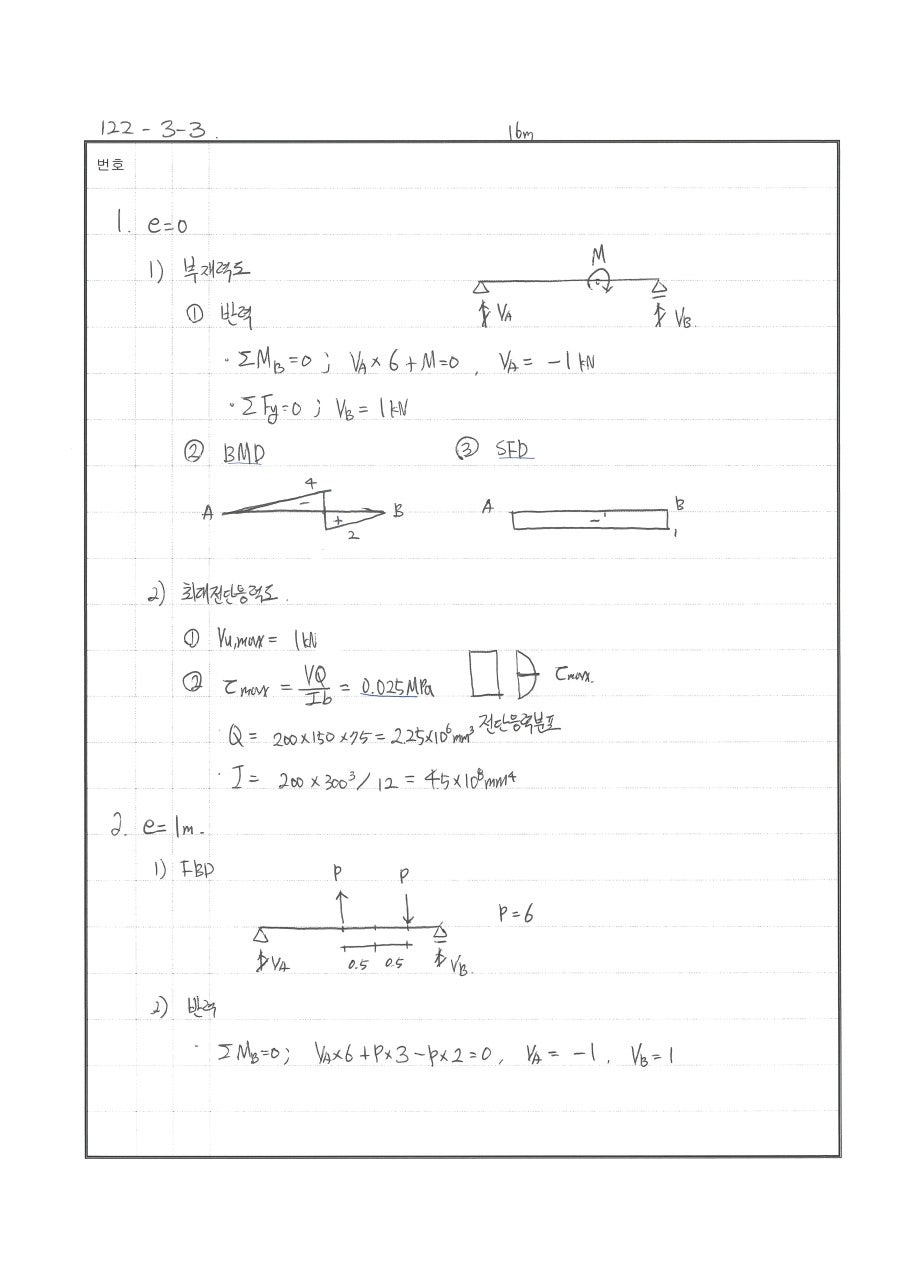 122 - 3-3.
16m
번호
1. e=0
1) 부재력도
M
① 반력
VA
VB.
· ΣMB=0 ; VA×6+M=0 , VA= -1kN
· ΣFy=0 ; VB= 1kN
② BMD ③ SFD
4
A - + B
2
A - B
1
2) 최대전단응력도.
① Vu,max= 1kN
② τmax = VQ/Ib = 0.025MPa
τmax.
전단응력분포
· Q= 200×150×75=2.25×10⁶mm³
· I= 200×300³/12 = 4.5×10⁸mm⁴
2. e=1m.
1) FBD
P P
P=6
VA 0.5 0.5 VB.
2) 반력
· ΣMB=0; VA×6+P×3-P×2=0, VA= -1, VB=1